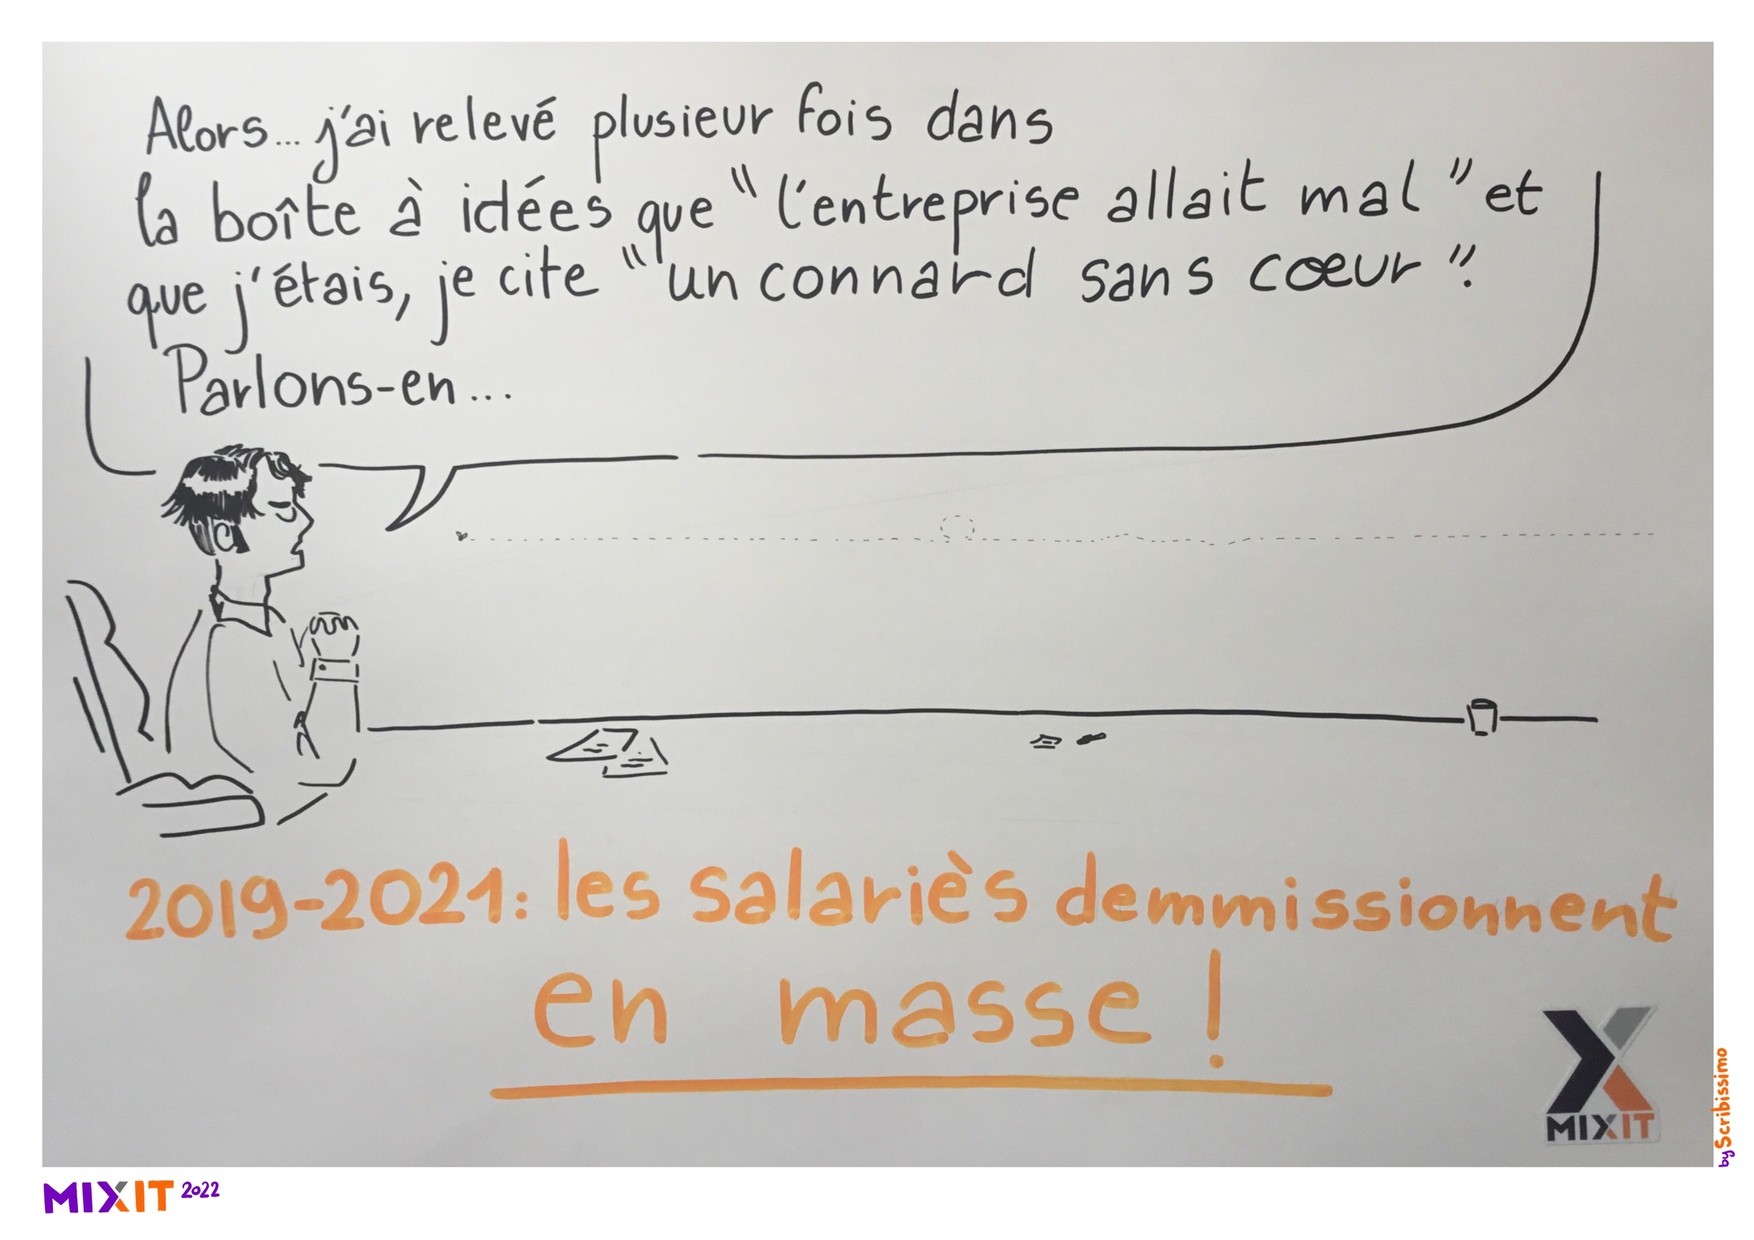 Alors... j'ai relevé plusieur fois dans
la boîte à idées que "l'entreprise allait mal" et
que j'étais, je cite "un connard sans cœur".
Parlons-en...
2019-2021: les salariès demmissionnent
en masse !
MIXIT
by Scribissimo
MIXIT 2022